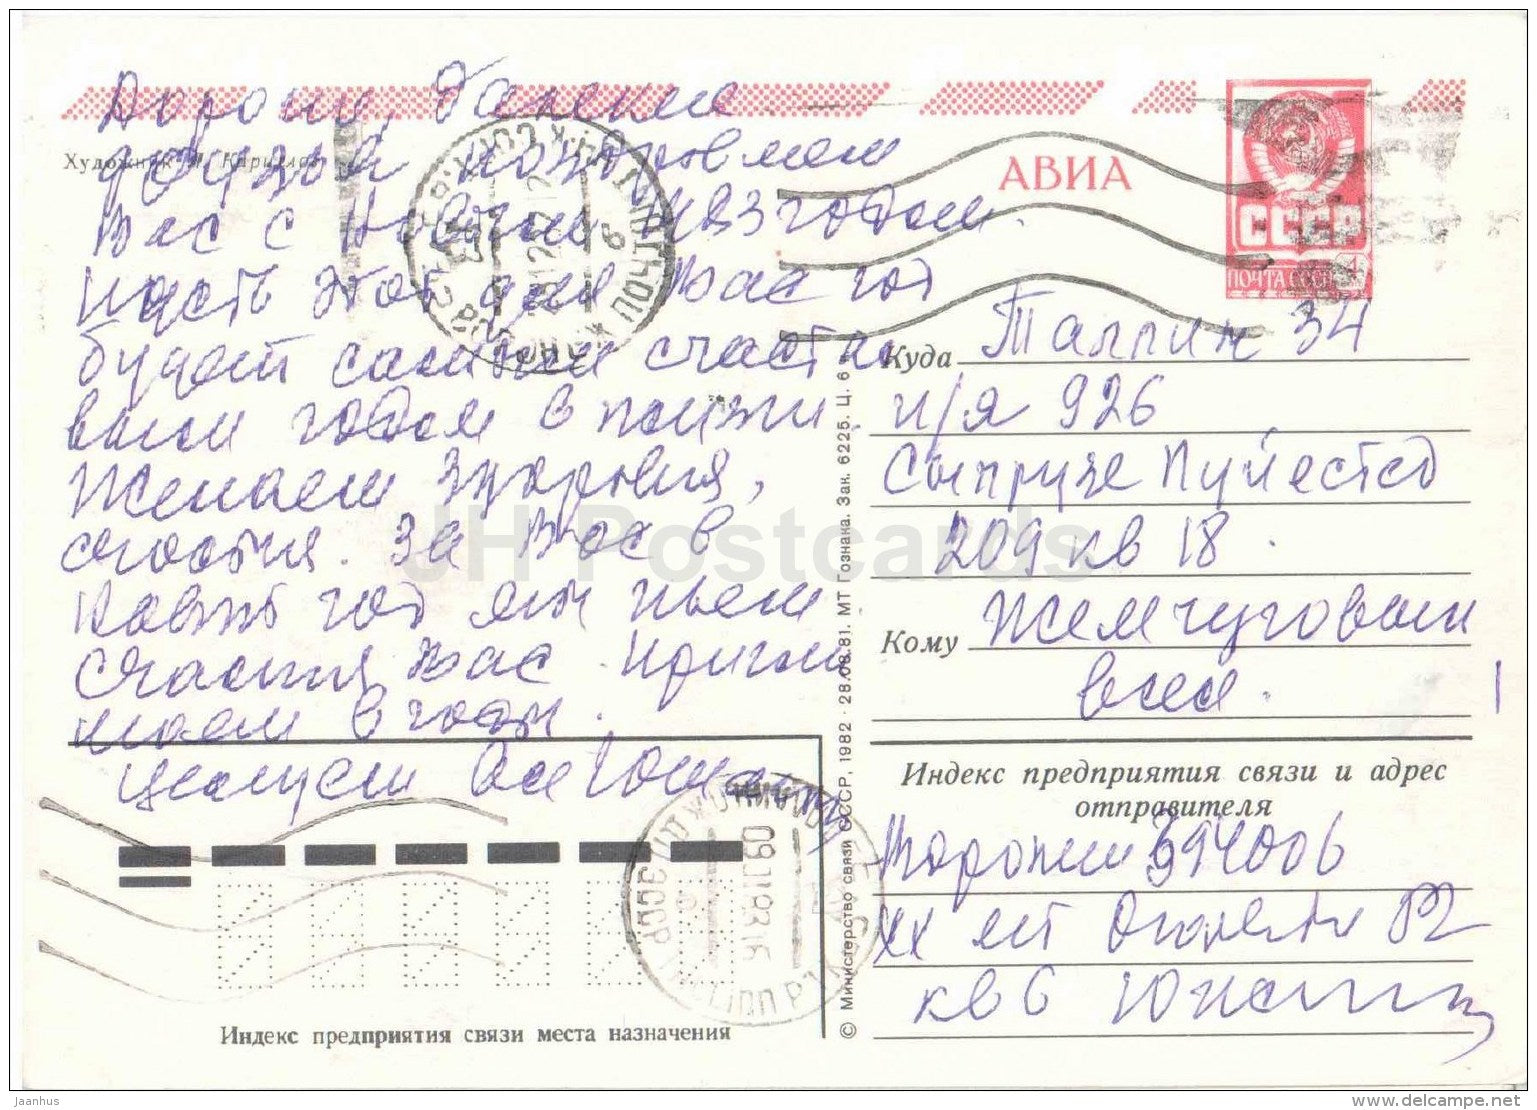 Дорогие, далекие
друзья поздравляем
Вас с Новым 1983 годом.
Пусть этот для Вас год
будет самым счастли
вым годом в жизни
Желаем здоровья,
счастья. За Вас в
Новый год мы пьем
счастья Вас. Пригла
шаем в гости.
Целуем Оля Юша
Художник
АВИА
СССР
ПОЧТА СССР 4
Куда Таллин 34
п/я 926
Сыпрузе Пуйестеэ
209 кв 18.
Кому Жемчуговым
всем.
Индекс предприятия связи и адрес
отправителя
Воронеж 394006
XX лет Октября 82
кв 6
Индекс предприятия связи места назначения
© Министерство связи СССР, 1982 · 28.08.81. МТ Гознака. Зак. 6225. Ц. 6
JH Postcards
Jaanhus
www.delcampe.net